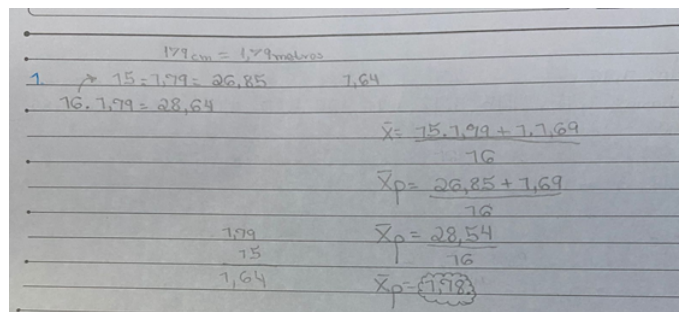 179 cm = 1,79 metros
1. → 15 = 1,79 = 26,85 1,64
16. 1,79 = 28,64
x̄ = 15.1,79 + 1.1,69
16
x̄p = 26,85 + 1,69
16
1,79 x̄p = 28,54
15 16
1,64 x̄p = 1,78